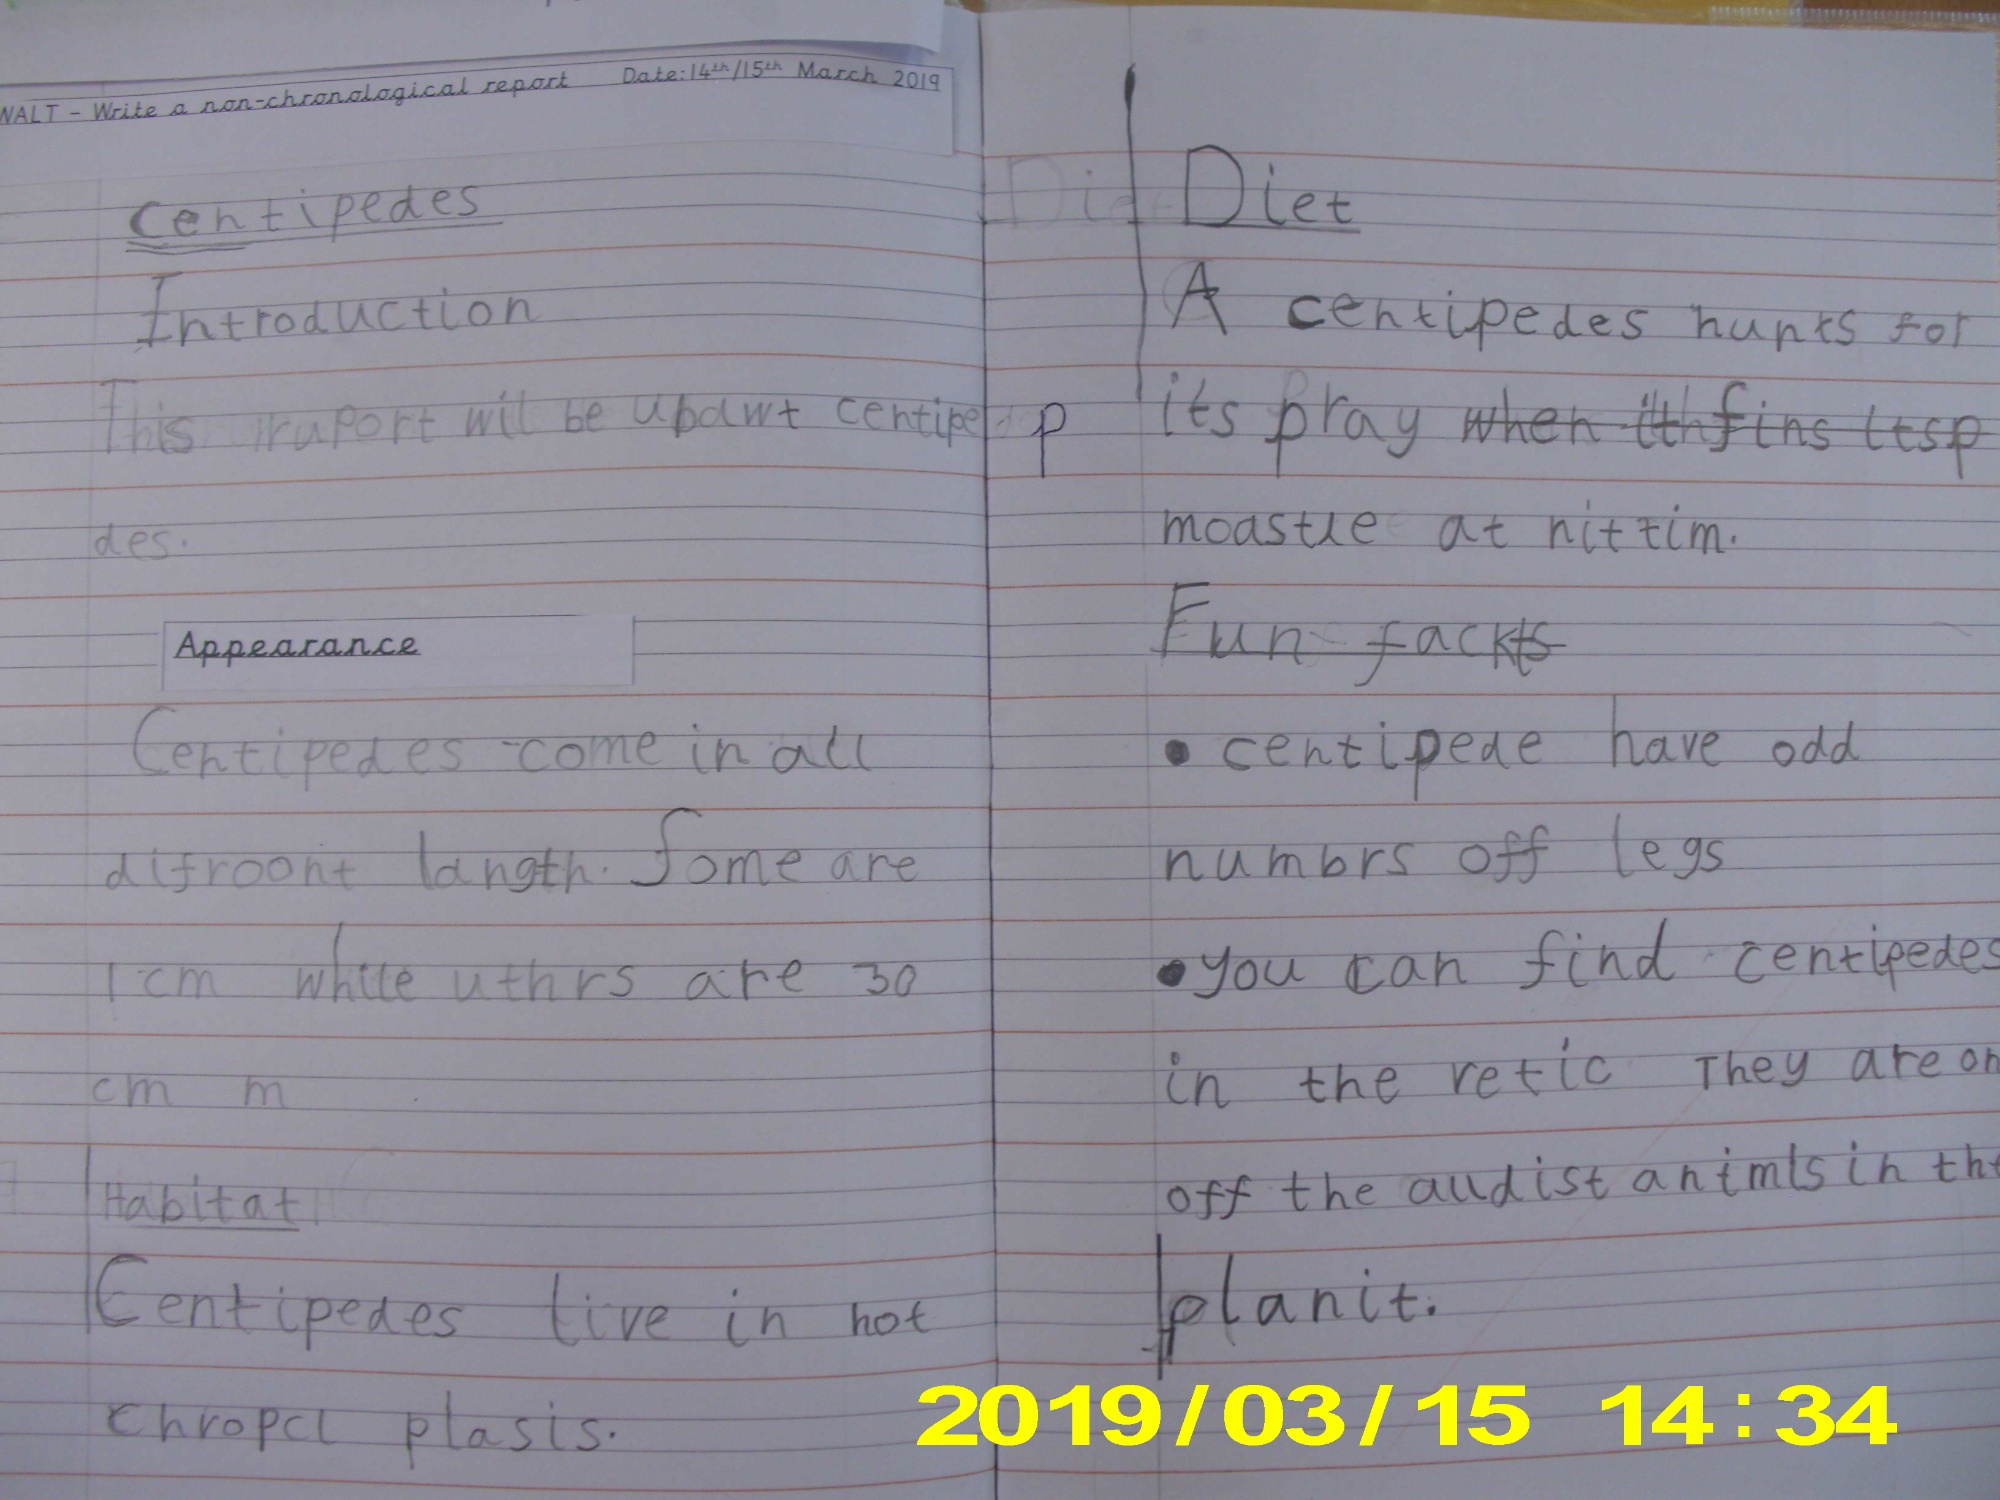 WALT - Write a non-chronological report Date: 14th/15th March 2019
Centipedes
Introduction
This ruport will be ubawt centipe
des.
Appearance
Centipedes come in all
difroont langth. Some are
1 cm while uthrs are 30
cm m
Habitat
Centipedes live in hot
chropcl plasis.
p
Diet
A centipedes hunts for
its pray when it fins itsp
moastle at nittim.
Fun fackts
• centipede have odd
numbrs off legs
• you can find centipedes
in the retic They are on
off the audist animls in the
planit.
2019/03/15 14:34